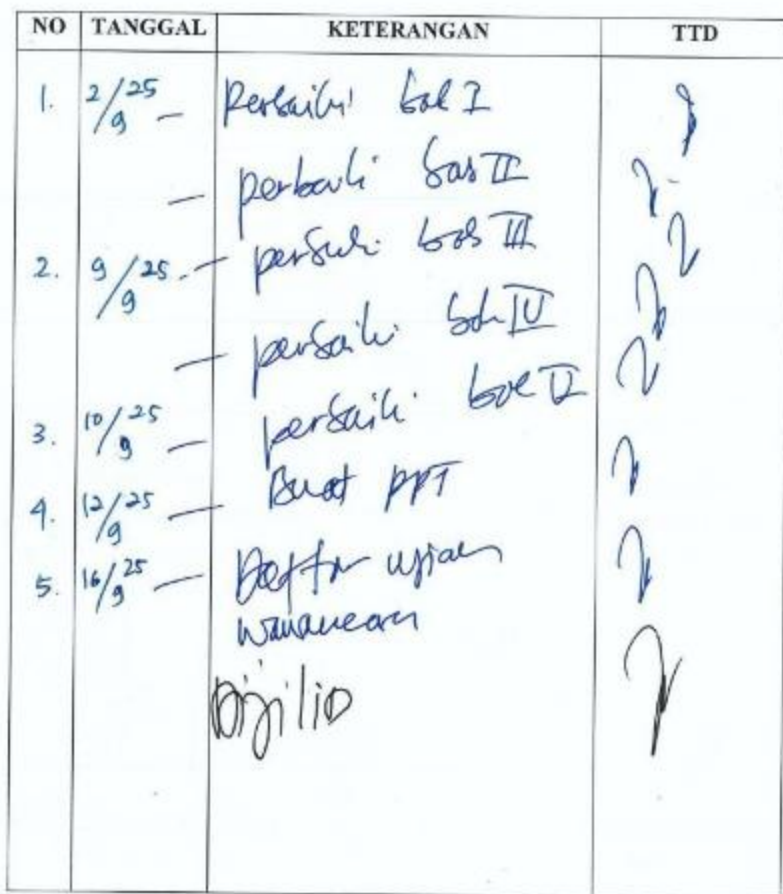 NO TANGGAL KETERANGAN TTD
1. 2/9 25 - Perbaiki bab I
- perbaiki bab II
2. 9/9 25 - perbaiki bab III
- perbaiki bab IV
3. 10/9 25 - perbaiki bab V
4. 12/9 25 - Buat PPT
5. 16/9 25 - Daftar ujian
wawancara